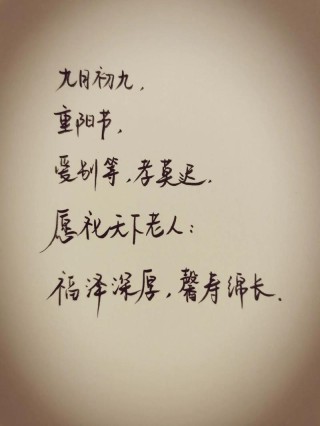 九月初九,
重阳节,
爱别等,孝莫迟.
愿祝天下老人:
福泽深厚,馨寿绵长.